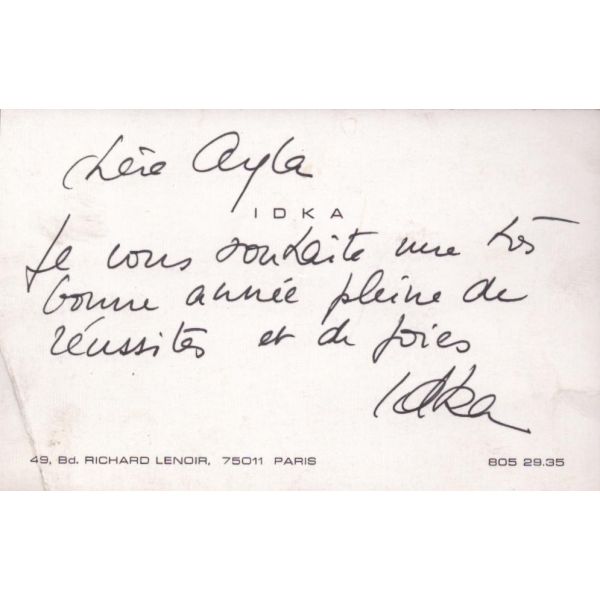 chère Ayla
IDKA
Je vous souhaite une très
bonne année pleine de
réussites et de joies
Idka
49, Bd. RICHARD LENOIR, 75011 PARIS
805 29.35